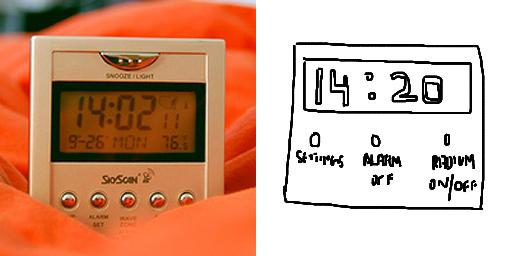 SNOOZE/LIGHT
14:02 11
9-26 MON 76
SkyScan
ALARM SET
WAVE
ZONE
14:20
SETTINGS
ALARM
OFF
RADIUM
ON/OFF